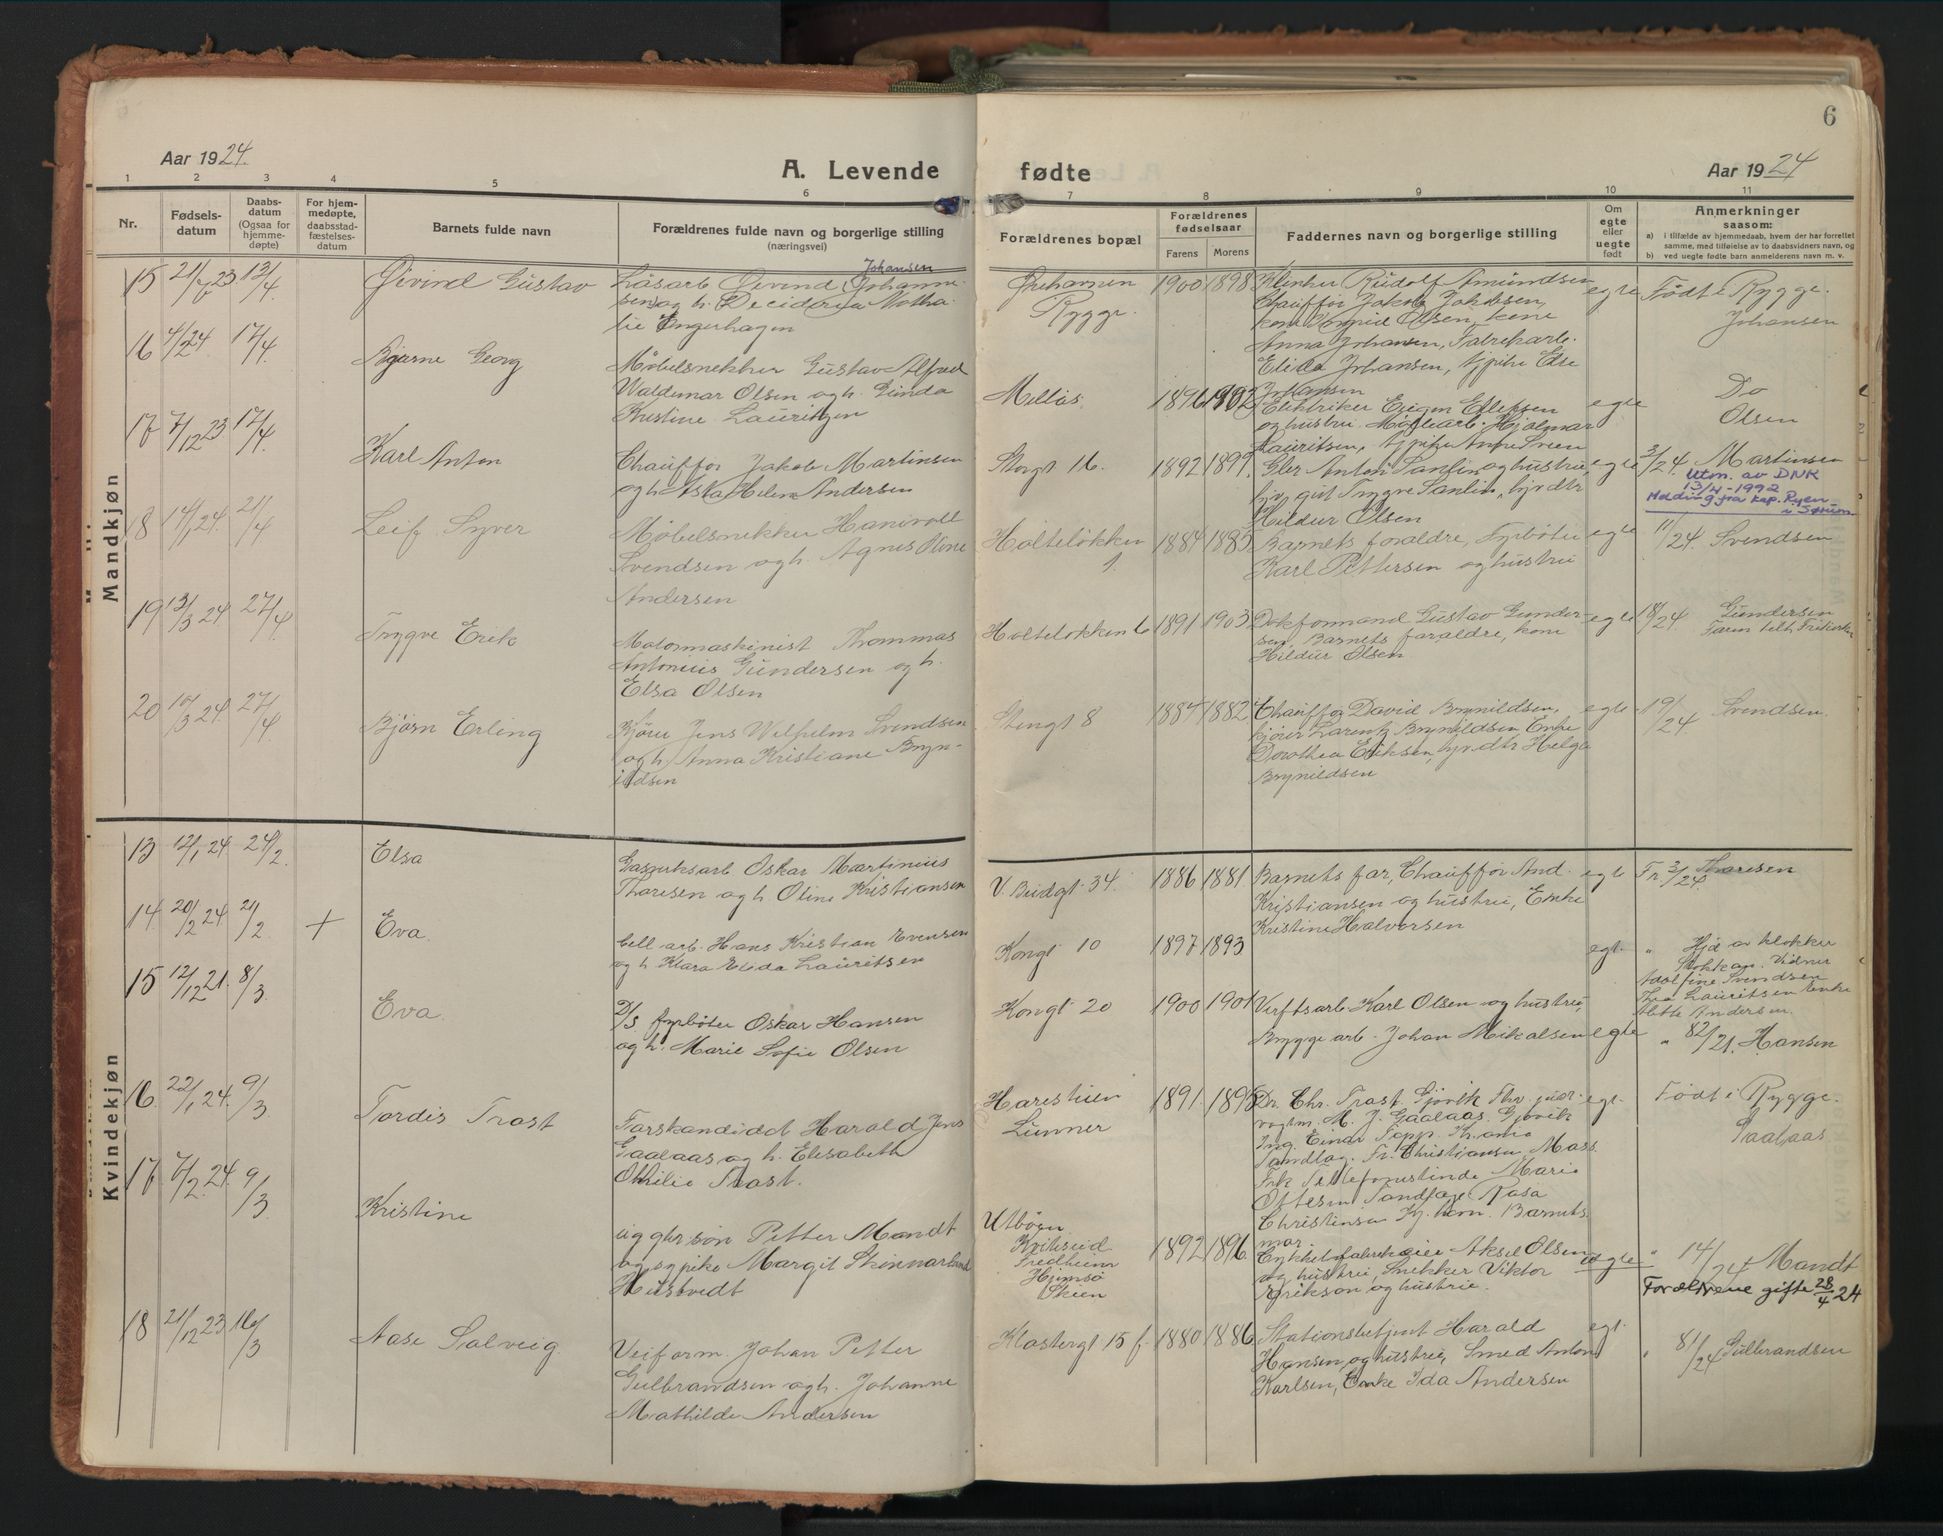 6
Aar 1924.
A. Levende
fødte
Aar 1924
1 2 3 4 5 6 7 8 9 10 11
Nr.
Fødsels-
datum
Daabs-
datum
(Ogsaa for
hjemme-
døpte)
For hjem-
medøpte,
daabsstad-
fæstelses-
datum
Barnets fulde navn
Forældrenes fulde navn og borgerlige stilling
(næringsvei)
Forældrenes bopæl
Forældrenes
fødselsaar
Farens
Morens
Faddernes navn og borgerlige stilling
Om
egte
eller
uegte
født
Anmerkninger
saasom:
a) i tilfælde av hjemmedaab, hvem der har forrettet
samme, med tilføielse av to daabsvidners navn, og
b) ved uegte fødte barn anmelderens navn m. v.
Mandkjøn
15 13/4 Øivind Gustav
Johansen
Løsarb. Øivind Johanne-
sen og h.
lie Engerhagen
Rygge.
1900 1898
Rudolf Amundsen
Chauffør Jakob Jakobsen,
kone Olsen, kone
Anna Johansen, Fabrekarb.
Elida Johansen, tjpike Else
Johansen
egte
Født i Rygge.
Johansen
16 17/4 Bjarne Georg
Møbelsnekker Gustav Alfred
Waldemar Olsen og h. Gunda
Kristine Lauritzen
Melløs.
1896 1902
Elektriker Ellefsen
og hustru. Hjalmar
Lauritsen, tjpike
egte
Do
Olsen
17 7/12 23 17/4 Karl Anton
Chauffør Jakob Martinsen
og h. Aska Helene Andersen
Storgt 16.
1892 1899.
Anton Sanlin og hustru,
hjv. gut Trygve Sanlin, hjv dtr
Hildur Olsen
egte
3/24. Martinsen
Utm. av DNK
13/4-1992
Melding fra kap. Ryen
i Sørum.
18 14/1 24. 21/4 Leif Syver
Møbelsnekker Hanivoll
Svendsen og h. Agnes Oline
Andersen
Holteløkken
1.
1884 1885
Barnets foraldre, Fyrbøter
Karl Pettersen og hustru
egte
11/24. Svendsen
19 13/3 24 27/4 Trygve Erik
Motormaskinist Thommas
Antonius Gundersen og h.
Elsa Olsen
Holteløkken 6
1891 1903
Dokformand Gustav Gunder-
sen, Barnets foraldre, kone
Hildur Olsen
egte
18/24. Gundersen
20 10/3 24. 27/4 Bjørn Erling
Kjører Jens Wilhelm Svendsen
og h. Anna Kristiane Bryn-
ildsen
Stengt 8
1884 1882
Chauffør David Brynildsen,
kjører Larents Brynildsen, Enke
Dorothea Eriksen, hjv dtr Helga
Brynildsen
egte
19/24 Svendsen.
Kvindekjøn
13 12/1 24. 24/2. Elsa
Gasverksarb Oskar Martinius
Thoresen og h. Oline Kristiansen
V. Budgt. 34.
1886 1881
Barnets far, Chauffør And.
Kristiansen og hustru, Enke
Kristine Halvorsen
egte
Fr. 3/24. Thoresen
14 20/2 24 21/2 + Eva.
Cell. arb. Hans Kristian Evensen
og h. Klara Elida Lauritsen
Kongt 10
1897 1893
egt.
" Hjd av klokker
Vidner
Svendsen
Thea Lauritsen Enke
Andersen.
15 12/12 21. 8/3. Eva.
D/S. fyrbøter Oskar Hansen
og h. Marie Sofie Olsen
Kongt 20
1900 1901
Verftsarb Karl Olsen og hustru,
Bryggearb. Johan Mikalsen
egte
" 82/21. Hansen
16. 22/1 24. 9/3. Tordis Trost
Forskandidat Harald Jens
Gaalaas og h. Elisabeth
Othilie Trost.
Harestuen
Lunner
1891. 1895
Dr. Chr. Trost. Gjøvik
M. J. Gaalaas. Gjøvik
Ing. Einar
Fr. Christiansen, Moss
Frk. Marie
Ottesen Rosa
Christensen Barnets
mor.
egt.
Født i Rygge.
Gaalaas
17. 7/2. 24. 9/3. Kristine
Petter Mandt
og pike Margit Skinnarland
Hustvedt
Utbøen
Kviteseid
Fredheim
Hjemsø
Skien
1892 1896
Cykkelfabrikeier Aksel Olsen
og hustru Snekker Viktor
Erikson og hustru.
uegte
" 14/24 Mandt
Forældrene gifte 28/4 24
18 21/12 23 16/3 Aase Solveig
Veiform. Johan Petter
Gulbrandsen og h. Johanne
Mathilde Andersen
Klostergt 15 f.
1880 1886
Stationsbetjent Harald
Hansen og hustru, Smed Anton
Karlsen, Enke Ida Andersen
egt.
" 81/24 Gulbrandsen